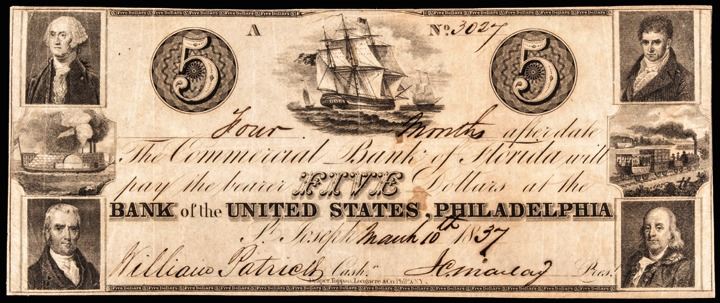 Five Dollars Five Dollars Five Dollars Five Dollars Five Dollars Five Dollars
A No. 3027
5 5
Four Months after date
The Commercial Bank of Florida will
pay the bearer FIVE Dollars at the
BANK of the UNITED STATES, PHILADELPHIA
St. Joseph March 10th 1837
William Patrick Cashr. Pres.
Draper, Toppan, Longacre & Co. Phila. & N.Y.